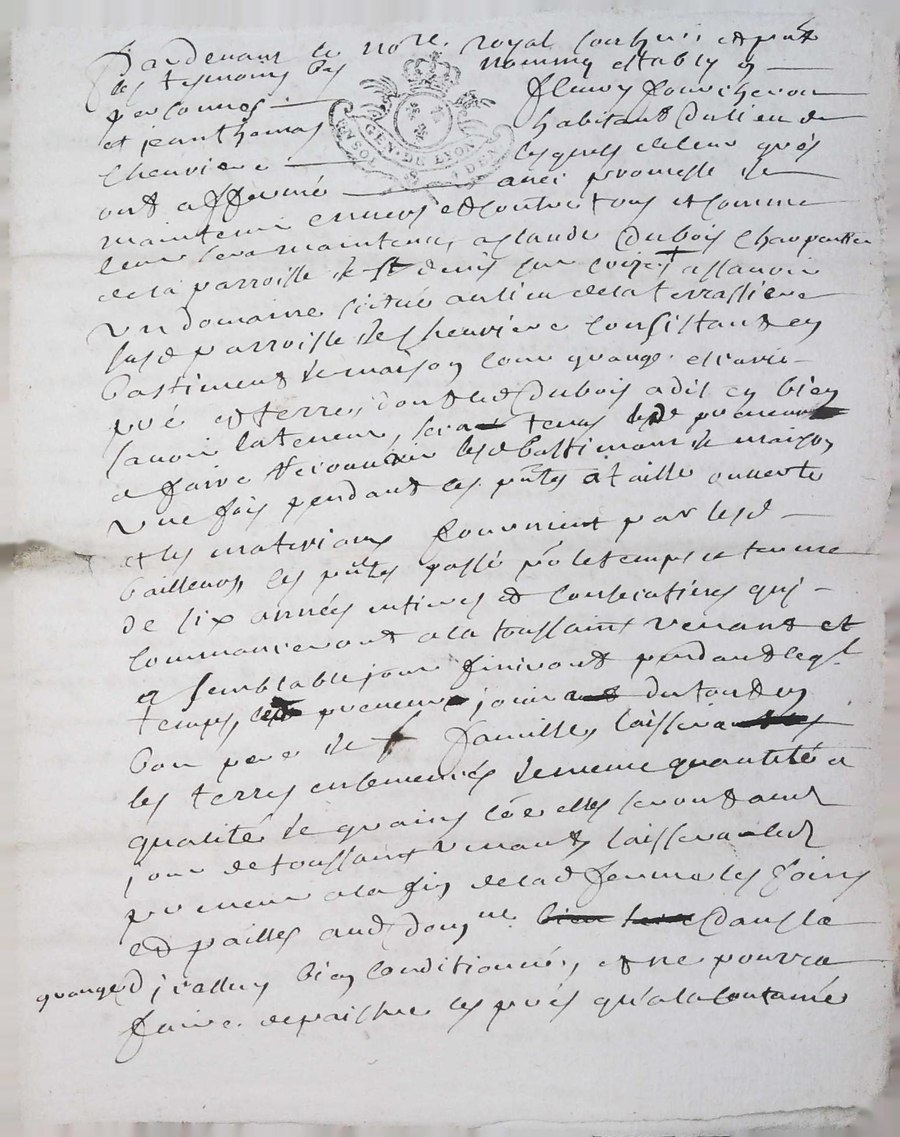 Pardevant le no.re royal soubsigné et pnts
les tesmoins bas nommez establys en
personnes fleury
et jean thomas habitant du lieu de
Cheuviere lesquels de leur grés
ont affermé avec promesse de
maintenir envers et contre tous et comme
leur sera maintenu, a Claude Dubois Charpentier
de la parroisse de St denis sur coize assavoir
un domaine scitué au lieu de la terrassiere
susd parroisse de Cheuviere consistant en
bastiment de maison cour grange et
pré et terres, dont led Dubois a dit en bien
scavoir la teneur, sera tenus led preneur
a faire recouvrir lesd bastiment de maison
une fois pendant les pntes a taille ouverte
et les materiaux fournient par lesd
bailleurs, les pntes passé po.r le temps et terme
de six années entieres et consecutives qui
commanceront a la toussaint venant et
a semblable jour finiront pendant leql
temps, preneur jouira du tout en
bon pere de famille, laissera
les terres ensemencés de meme quantité et
qualité de grains côe elles seront aud
jour de toussaint venant, laissera led
preneur a la fin de lad ferme les foins
et pailles aud dom.ne dans la
grange d'icelluy bien conditionnés, et ne pourra
faire depaistre les prés qu'a la coutumée
GEN. DE LYON